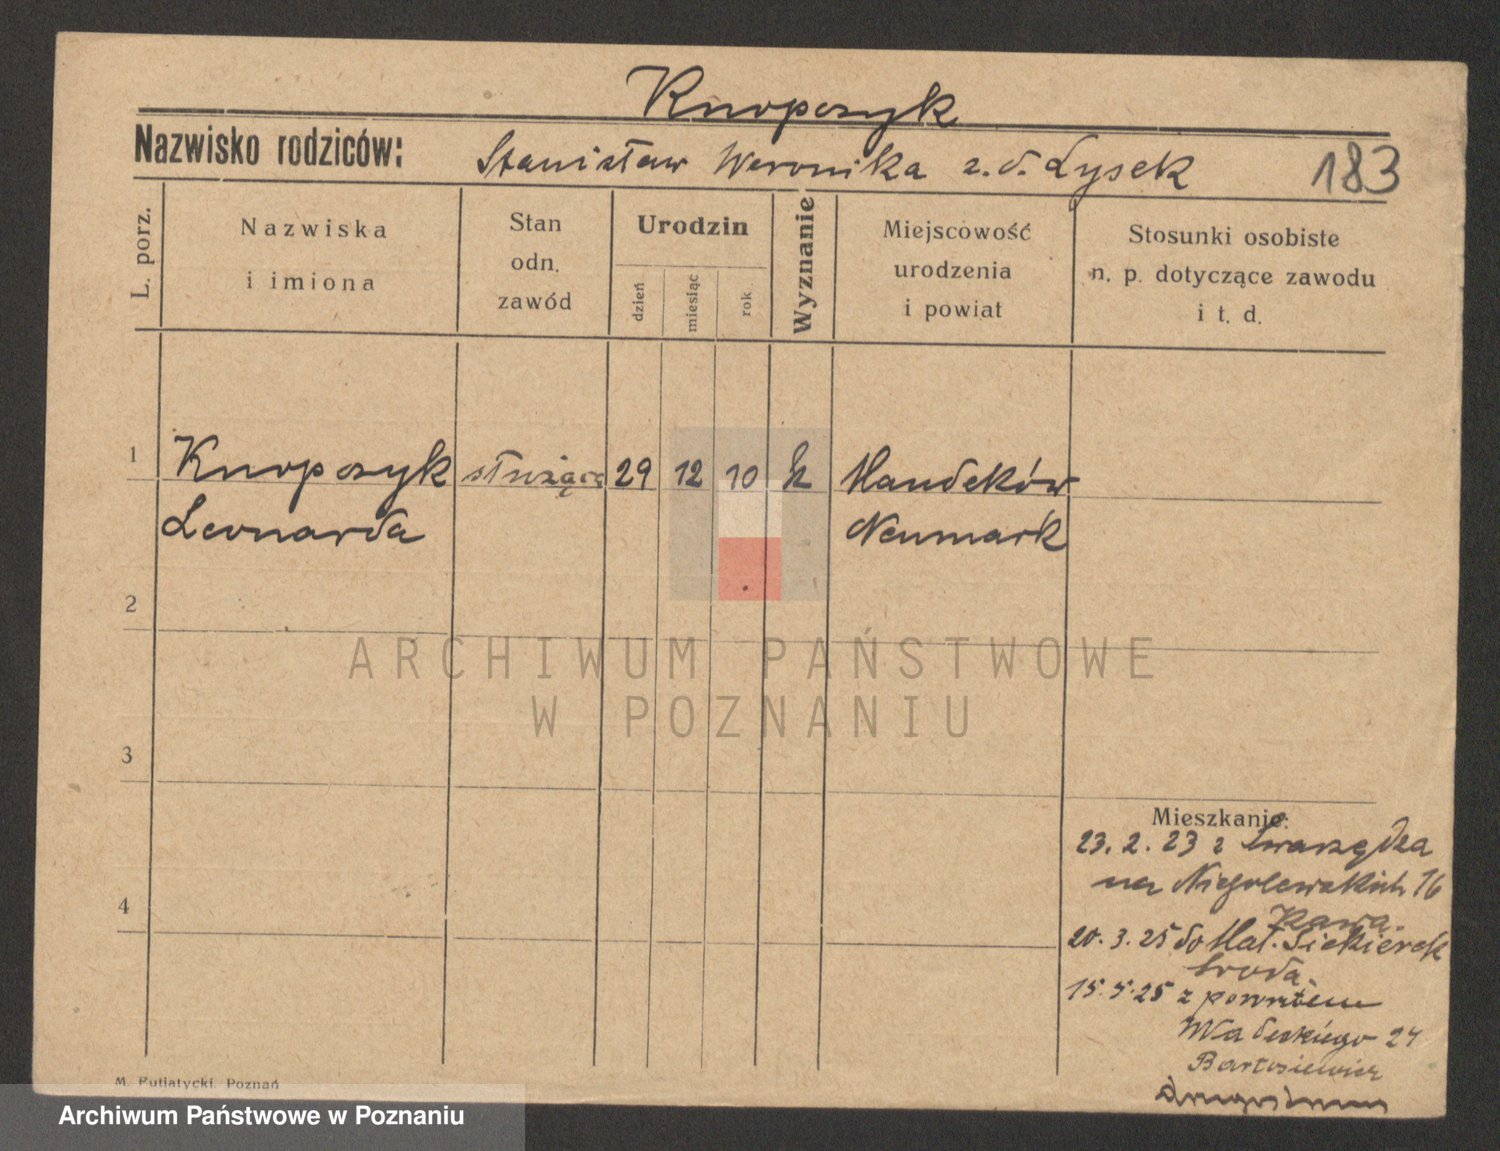 Knopczyk
Nazwisko rodziców: Stanisław Weronika z. d. Łysek 183
L. porz.
Nazwiska
i imiona
Stan
odn.
zawód
Urodzin
dzień
miesiąc
rok
Wyznanie
Miejscowość
urodzenia
i powiat
Stosunki osobiste
n. p. dotyczące zawodu
i t. d.
1 Knopczyk służąca 29 12 10 k
Leonarda Neumark
2
ARCHIWUM PAŃSTWOWE
W POZNANIU
3
Mieszkanie:
23. 2. 23 z Swarzędza
na Niegolewskich 16
4
20. 3. 25 do Mał. Siekierek
Środa
15. 5. 25 z powrotem
24
Bartosiewicz
M. Putiatycki, Poznań
Archiwum Państwowe w Poznaniu